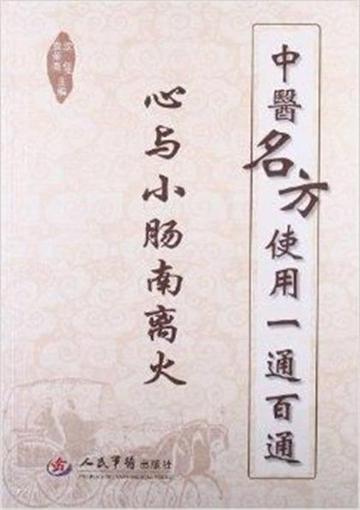 中醫名方使用一通百通
心与小肠南离火
主编
人民军医出版社